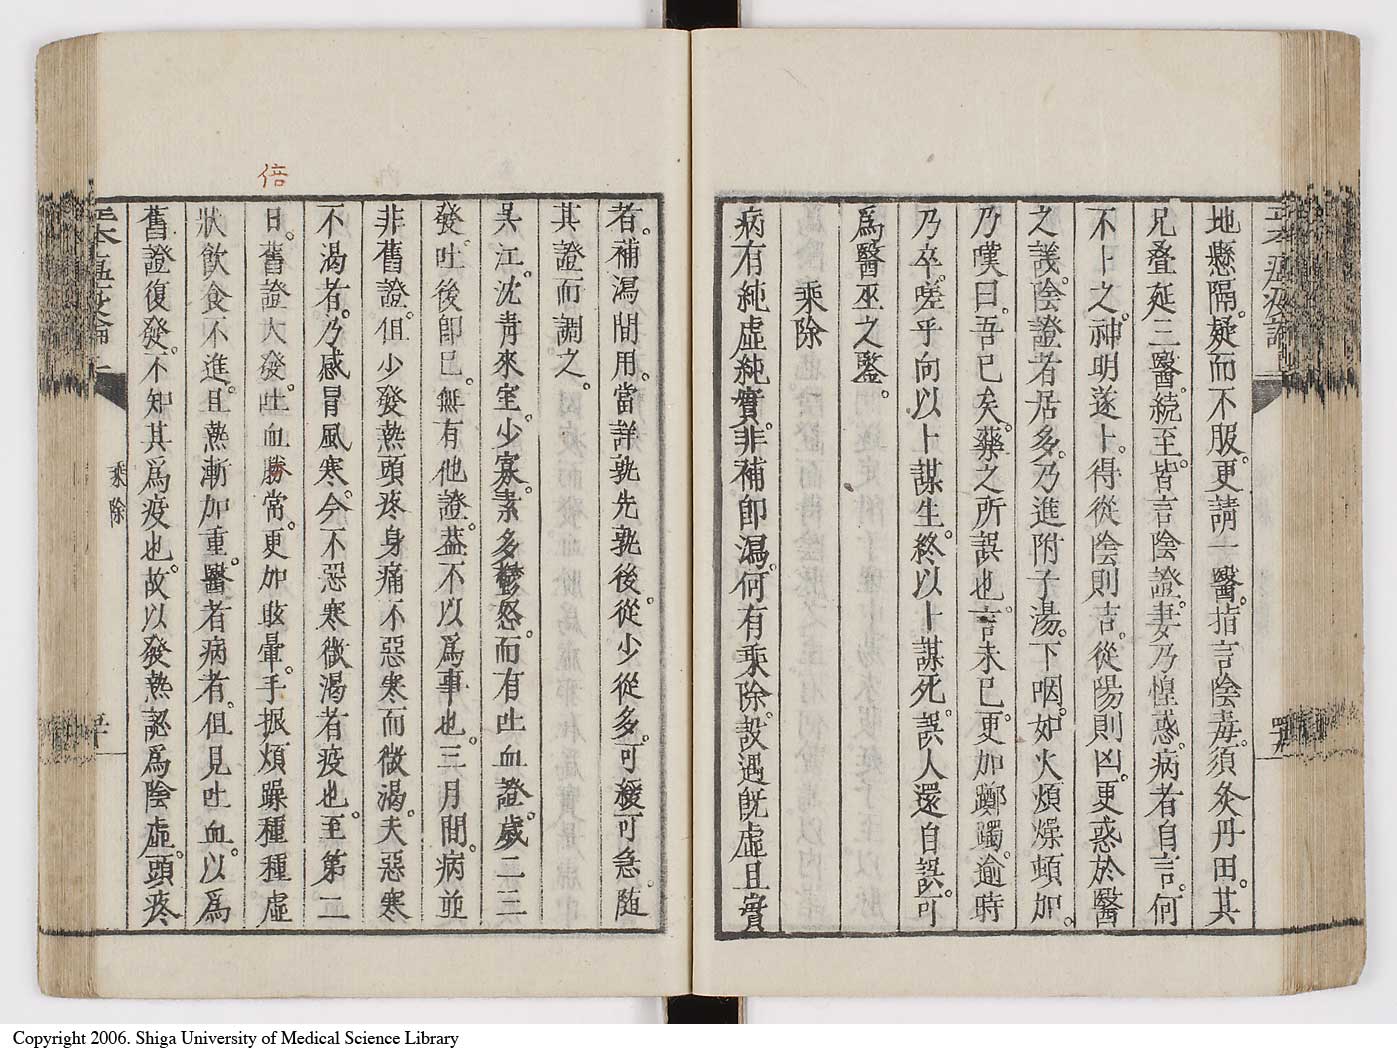 地懸隔。疑而不服。更請一醫。指言陰毒。須灸丹田。其
兄叠延二醫。続至。皆言陰證。妻乃惶惑。病者自言。何
不卜之。神明遂卜。得從陰則吉。從陽則凶。更惑於醫
之議。陰證者居多。乃進附子湯。下咽。如火煩燥頓加。
乃嘆曰。吾已矣。藥之所誤也。言未已。更加躑躅。逾時
乃卒。嗟乎向以卜謀生。終以卜謀死。誤人還自誤。可
爲醫巫之鑒。
乘除
病有純虛純實。非補卽瀉。何有乘除。設遇旣虛且實
者。補瀉間用。當詳孰先孰後。從少從多。可緩可急。随
其證而調之。
吳江。沈青來室。少寡。素多鬱怒。而有吐血證。歲二三
發。吐後卽已。無有他證。葢不以爲事也。三月間。病並
非舊證。但少發熱頭疼身痛不惡寒而微渴。夫惡寒
不渴者。乃感冒風寒。今不惡寒微渴者疫也。至第二
日。舊證大發。吐血勝常。更加眩暈。手振煩躁種種虛
狀飲食不進。且熱漸加重。醫者病者。但見吐血。以爲
舊證復發。不知其爲疫也。故以發熱認爲陰虛。頭疼
乘除
倍
Copyright 2006. Shiga University of Medical Science Library